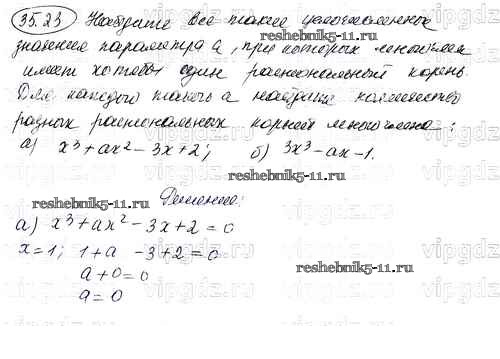 35.23 Найдите все такие целочисленные
значения параметра а, при которых многочлен
имеет хотя бы один рациональный корень.
Для каждого такого а найдите количество
разных рациональных корней многочлена:
а) x³+ax²-3x+2; б) 3x³-ax-1.
reshebnik5-11.ru
Решение:
а) x³+ax²-3x+2=0
x=1; 1+a -3+2=0
a+0=0
a=0
reshebnik5-11.ru
reshebnik5-11.ru
vipgdz